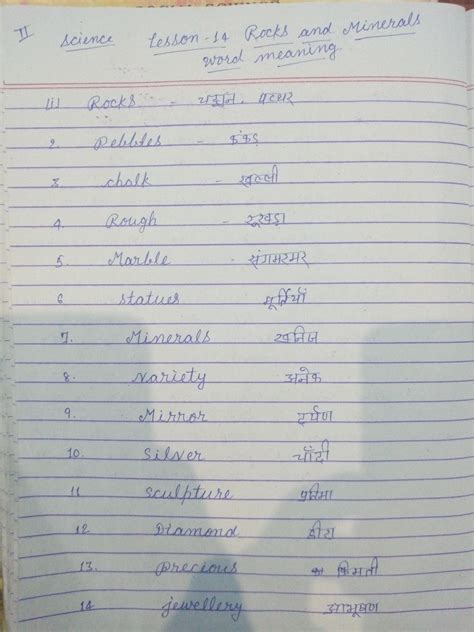 II Science Lesson-14 Rocks and Minerals
word meaning
(1) Rocks - चट्टान, पत्थर
2. Pebbles - कंकड़
3. chalk - खल्ली
4. Rough - रूखड़ा
5. Marble - संगमरमर
6 statues मूर्तियाँ
7. Minerals खनिज
8. Variety अनेक
9. Mirror दर्पण
10. Silver चाँदी
11 Sculpture प्रतिमा
12 Diamond हीरा
13. Precious किमती
14 jewellery आभूषण